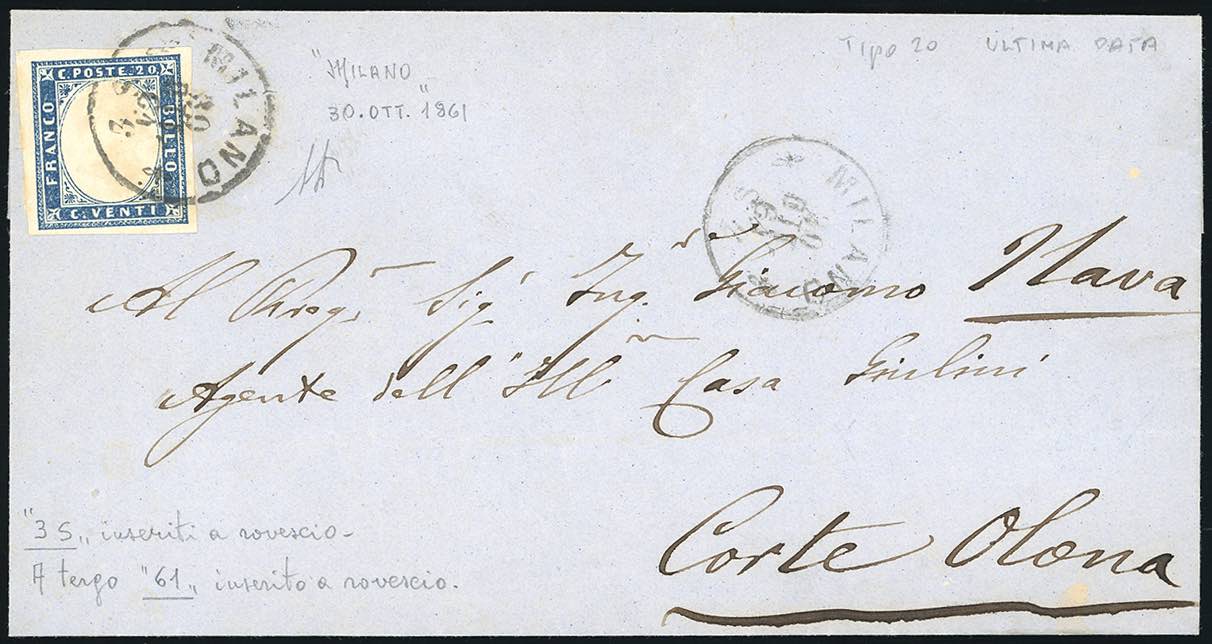 C. POSTE. 20.
FRANCO
BOLLO
C. VENTI
MILANO
30
"MILANO"
30. OTT. "1861
TIPO 20 ULTIMA DATA
* MILANO *
Al Sig. Ing. Giacomo Nava
Agente dell' Ill Casa Giulini
Corte Olona
"3 S„ inseriti a rovescio -
A tergo "61„ inserito a rovescio.